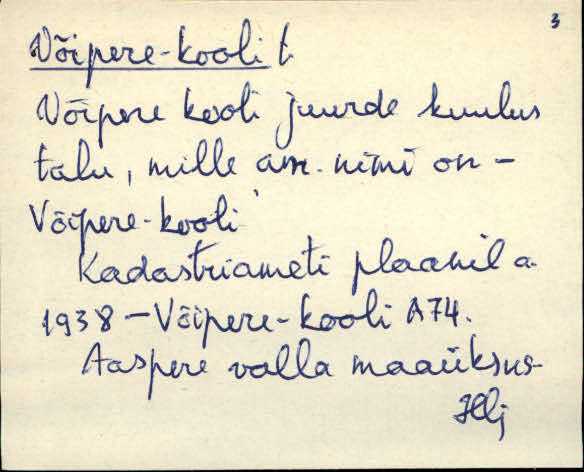 3
Võipere-kooli t.
Võipere kooli juurde kuulus
talu, mille am. nimi on –
Võipere-kooli
Kadastriameti plaanil a.
1938 – Võipere-kooli A74.
Aaspere valla maaüksus-